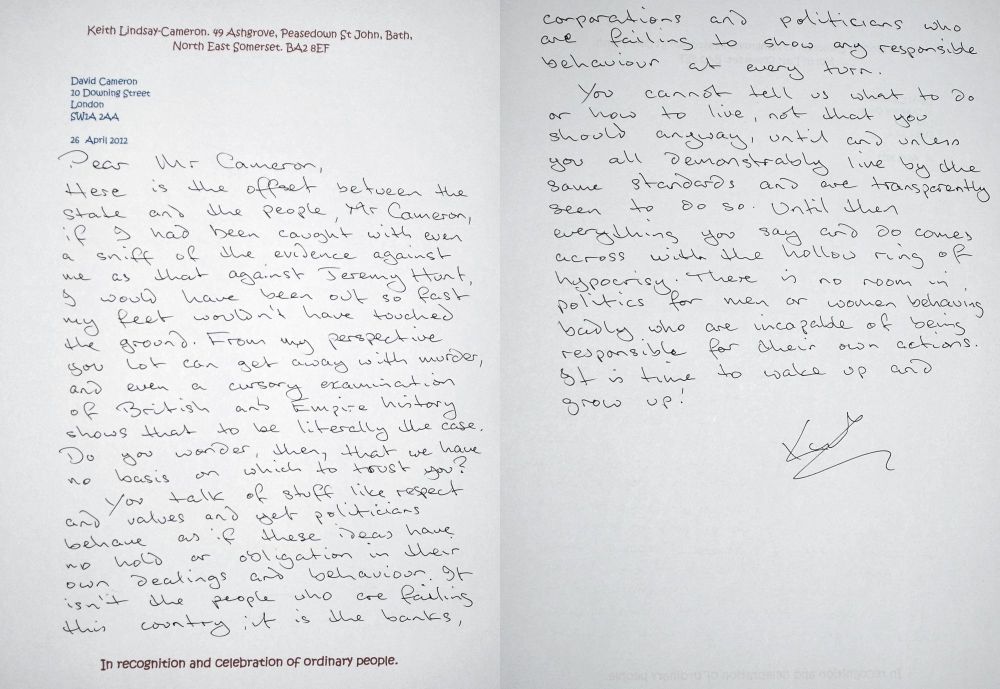 Keith Lindsay-Cameron. 49 Ashgrove, Peasedown St John, Bath,
North East Somerset. BA2 8EF
David Cameron
10 Downing Street
London
SW1A 2AA
26 April 2012
Dear Mr Cameron,
Here is the offset between the
state and the people, Mr Cameron,
if I had been caught with even
a sniff of the evidence against
me as that against Jeremy Hunt,
I would have been out so fast
my feet wouldn't have touched
the ground. From my perspective
you lot can get away with murder,
and even a cursory examination
of British and Empire history
shows that to be literally the case.
Do you wonder, then, that we have
no basis on which to trust you?
You talk of stuff like respect
and values and yet politicians
behave as if these ideas have
no hold or obligation in their
own dealings and behaviour. It
isn't the people who are failing
this country, it is the banks,
In recognition and celebration of ordinary people.
corporations and politicians who
are failing to show any responsible
behaviour at every turn.
You cannot tell us what to do
or how to live, not that you
should anyway, until and unless
you all demonstrably live by the
same standards and are transparently
seen to do so. Until then
everything you say and do comes
across with the hollow ring of
hypocrisy. There is no room in
politics for men or women behaving
badly who are incapable of being
responsible for their own actions.
It is time to wake up and
grow up!